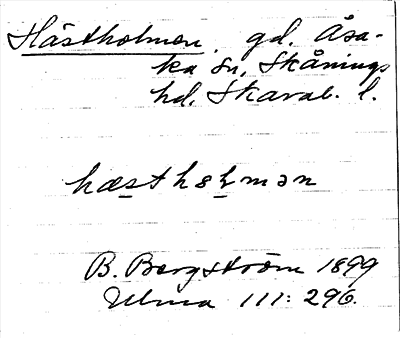 Hästholmen. gd. Åsa-
ka sn, Skånings
hd. Skarab. l.
hæsthɷlmən
B. Bergström 1899
Ulma 111: 296.